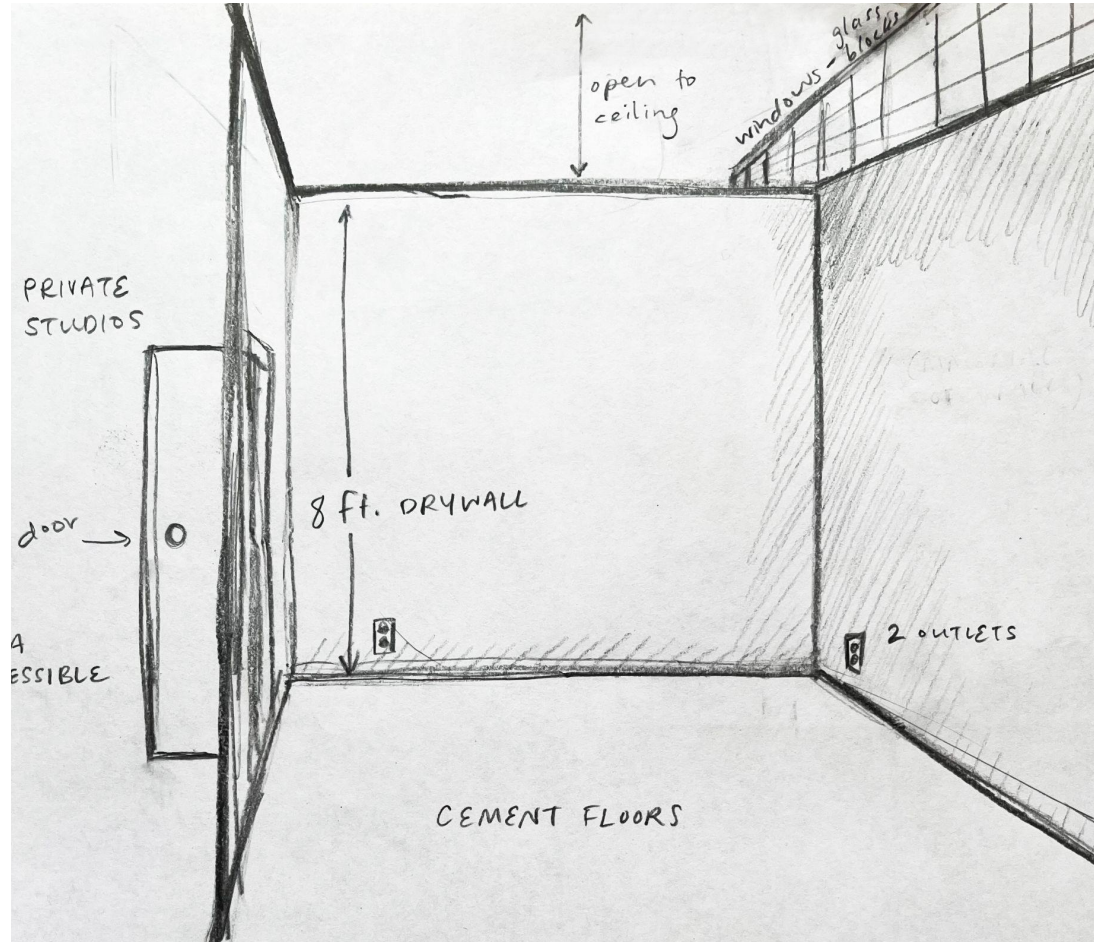 open to
ceiling
windows - glass
blocks
PRIVATE
STUDIOS
8 ft. DRYWALL
door
2 OUTLETS
A
ESSIBLE
CEMENT FLOORS